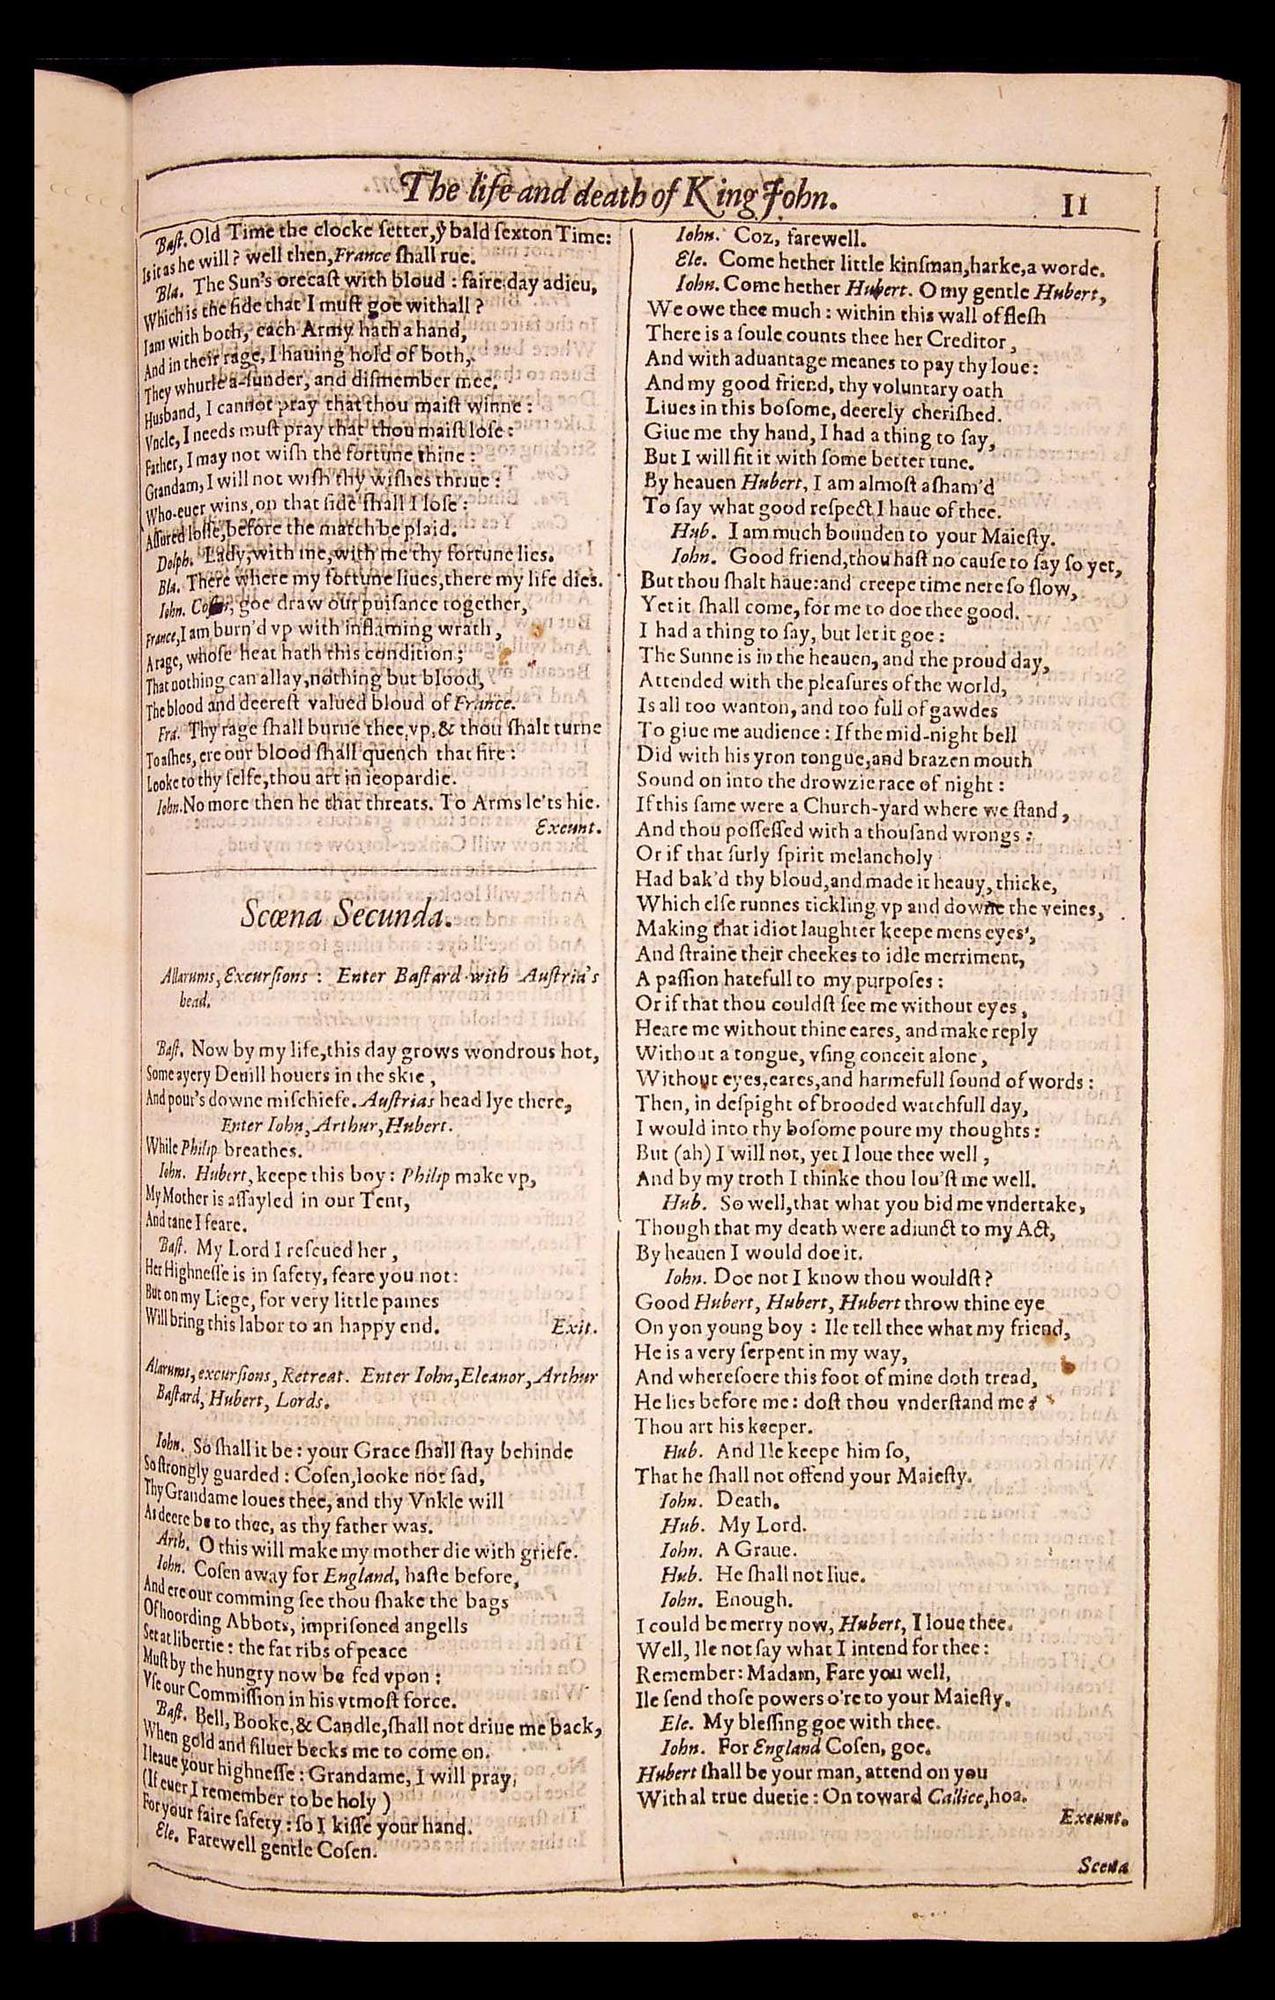 The life and death of King John. 11
Baſt. Old Time the clocke ſetter, ẙ bald ſexton Time:
Is it as he will? well then, France ſhall rue.
Bla. The Sun's orecaſt with bloud: faire day adieu,
Which is the ſide that I muſt goe withall?
I am with both, each Army hath a hand,
And in their rage, I hauing hold of both,
They whurle a-ſunder, and diſmember mee.
Husband, I cannot pray that thou maiſt winne:
Vncle, I needs muſt pray that thou maiſt loſe:
Father, I may not wiſh the fortune thine:
Grandam, I will not wiſh thy wiſhes thriue:
Who-euer wins, on that ſide ſhall I loſe:
Aſſured loſſe, before the match be plaid.
Dolph. Lady, with me, with me thy fortune lies.
Bla. There where my fortune liues, there my life dies.
Iohn. Coſen, goe draw our puiſance together,
France, I am burn'd vp with inflaming wrath,
A rage, whoſe heat hath this condition;
That nothing can allay, nothing but blood,
The blood and deereſt valued bloud of France.
Fra. Thy rage ſhall burne thee vp, & thou ſhalt turne
To aſhes, ere our blood ſhall quench that fire:
Looke to thy ſelfe, thou art in ieopardie.
Iohn. No more then he that threats. To Arms le'ts hie.
Exeunt.
Scœna Secunda.
Allarums, Excurſions: Enter Baſtard with Auſtria's
head.
Baſt. Now by my life, this day grows wondrous hot,
Some ayery Deuill houers in the skie,
And pour's downe miſchiefe. Auſtrias head lye there,
Enter Iohn, Arthur, Hubert.
While Philip breathes.
Iohn. Hubert, keepe this boy: Philip make vp,
My Mother is aſſayled in our Tent,
And tane I feare.
Baſt. My Lord I reſcued her,
Her Highneſſe is in ſafety, feare you not:
But on my Liege, for very little paines
Will bring this labor to an happy end. Exit.
Alarums, excurſions, Retreat. Enter Iohn, Eleanor, Arthur
Baſtard, Hubert, Lords.
Iohn. So ſhall it be: your Grace ſhall ſtay behinde
So ſtrongly guarded: Coſen, looke not ſad,
Thy Grandame loues thee, and thy Vnkle will
As deere be to thee, as thy father was.
Arth. O this will make my mother die with griefe.
Iohn. Coſen away for England, haſte before,
And ere our comming ſee thou ſhake the bags
Of hoording Abbots, impriſoned angells
Set at libertie: the fat ribs of peace
Muſt by the hungry now be fed vpon:
Vſe our Commiſſion in his vtmoſt force.
Baſt. Bell, Booke, & Candle, ſhall not driue me back,
When gold and ſiluer becks me to come on.
I leaue your highneſſe: Grandame, I will pray
(If euer I remember to be holy)
For your faire ſafety: ſo I kiſſe your hand.
Ele. Farewell gentle Coſen.
Iohn. Coz, farewell.
Ele. Come hether little kinſman, harke, a worde.
Iohn. Come hether Hubert. O my gentle Hubert,
We owe thee much: within this wall of fleſh
There is a ſoule counts thee her Creditor,
And with aduantage meanes to pay thy loue:
And my good friend, thy voluntary oath
Liues in this boſome, deerely cheriſhed.
Giue me thy hand, I had a thing to ſay,
But I will fit it with ſome better tune.
By heauen Hubert, I am almoſt aſham'd
To ſay what good reſpect I haue of thee.
Hub. I am much bounden to your Maieſty.
Iohn. Good friend, thou haſt no cauſe to ſay ſo yet,
But thou ſhalt haue: and creepe time nere ſo ſlow,
Yet it ſhall come, for me to doe thee good.
I had a thing to ſay, but let it goe:
The Sunne is in the heauen, and the proud day,
Attended with the pleaſures of the world,
Is all too wanton, and too full of gawdes
To giue me audience: If the mid-night bell
Did with his yron tongue, and brazen mouth
Sound on into the drowzie race of night:
If this ſame were a Church-yard where we ſtand,
And thou poſſeſſed with a thouſand wrongs:
Or if that ſurly ſpirit melancholy
Had bak'd thy bloud, and made it heauy, thicke,
Which elſe runnes tickling vp and downe the veines,
Making that idiot laughter keepe mens eyes,
And ſtraine their cheekes to idle merriment,
A paſſion hatefull to my purpoſes:
Or if that thou couldſt ſee me without eyes,
Heare me without thine eares, and make reply
Without a tongue, vſing conceit alone,
Without eyes, eares, and harmefull ſound of words:
Then, in deſpight of brooded watchfull day,
I would into thy boſome poure my thoughts:
But (ah) I will not, yet I loue thee well,
And by my troth I thinke thou lou'ſt me well.
Hub. So well, that what you bid me vndertake,
Though that my death were adiunct to my Act,
By heauen I would doe it.
Iohn. Doe not I know thou wouldſt?
Good Hubert, Hubert, Hubert throw thine eye
On yon young boy: Ile tell thee what my friend,
He is a very ſerpent in my way,
And whereſoere this foot of mine doth tread,
He lies before me: doſt thou vnderſtand me?
Thou art his keeper.
Hub. And Ile keepe him ſo,
That he ſhall not offend your Maieſty.
Iohn. Death.
Hub. My Lord.
Iohn. A Graue.
Hub. He ſhall not liue.
Iohn. Enough.
I could be merry now, Hubert, I loue thee.
Well, Ile not ſay what I intend for thee:
Remember: Madam, Fare you well,
Ile ſend thoſe powers o're to your Maieſty.
Ele. My bleſſing goe with thee.
Iohn. For England Coſen, goe.
Hubert ſhall be your man, attend on you
With al true duetie: On toward Callice, hoa.
Exeunt.
Scena